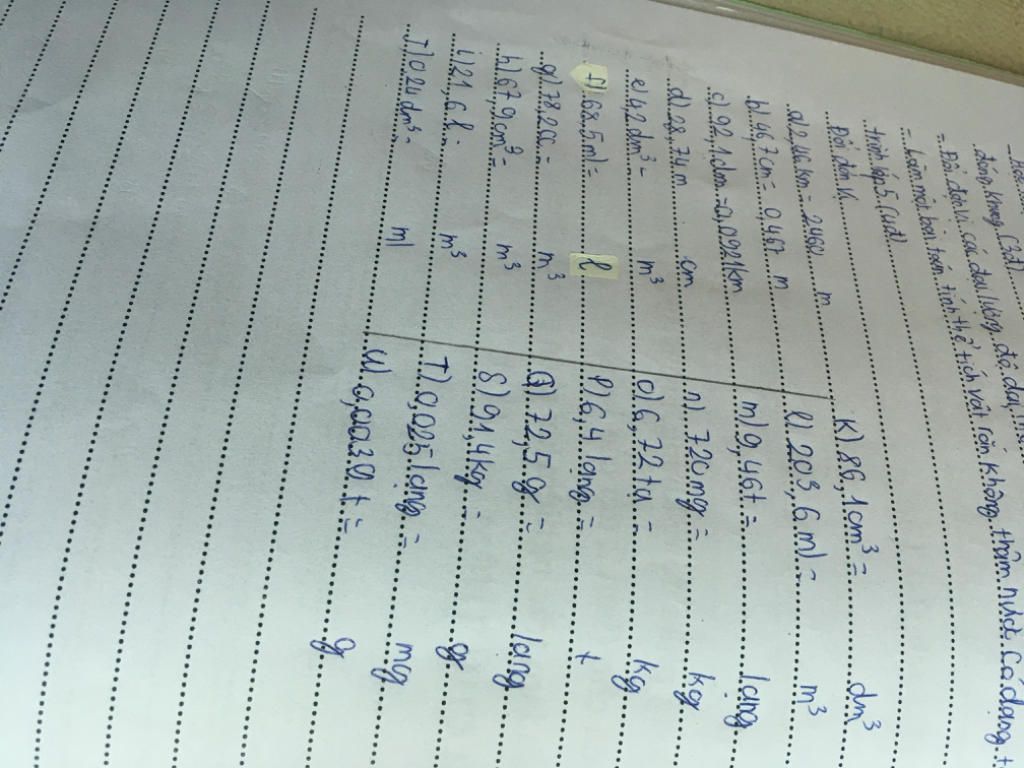 đong, khung (3đ)
= Đổi đơn vị các đau lượng độ dai,
= Làm một bài toán tính thể tích vật rắn không thấm nước có dạng
trình lớp 5 (1,5đ)
Đổi đơn vị
a) 2,46 km = 2460 m
b) 46,7 cm = 0,467 m
c) 92,1 dm = 0,0921 km
d) 28,74 m cm
e) 4,2 dm³ = m³
f) 68,5 ml = l
g) 78,2 cc = m³
h) 67,9 cm³ = m³
i) 21,6 l = m³
J) 0,24 dm³ = ml
K) 86,1 cm³ = dm³
l) 203,6 ml = m³
m) 9,46 t = lạng
n) 720 mg = kg
o) 6,72 tạ = kg
P) 6,4 lạng = t
Q) 72,5 g = lạng
S) 91,4 kg = g
T) 0,025 lạng = mg
U) 0,0030 t = g